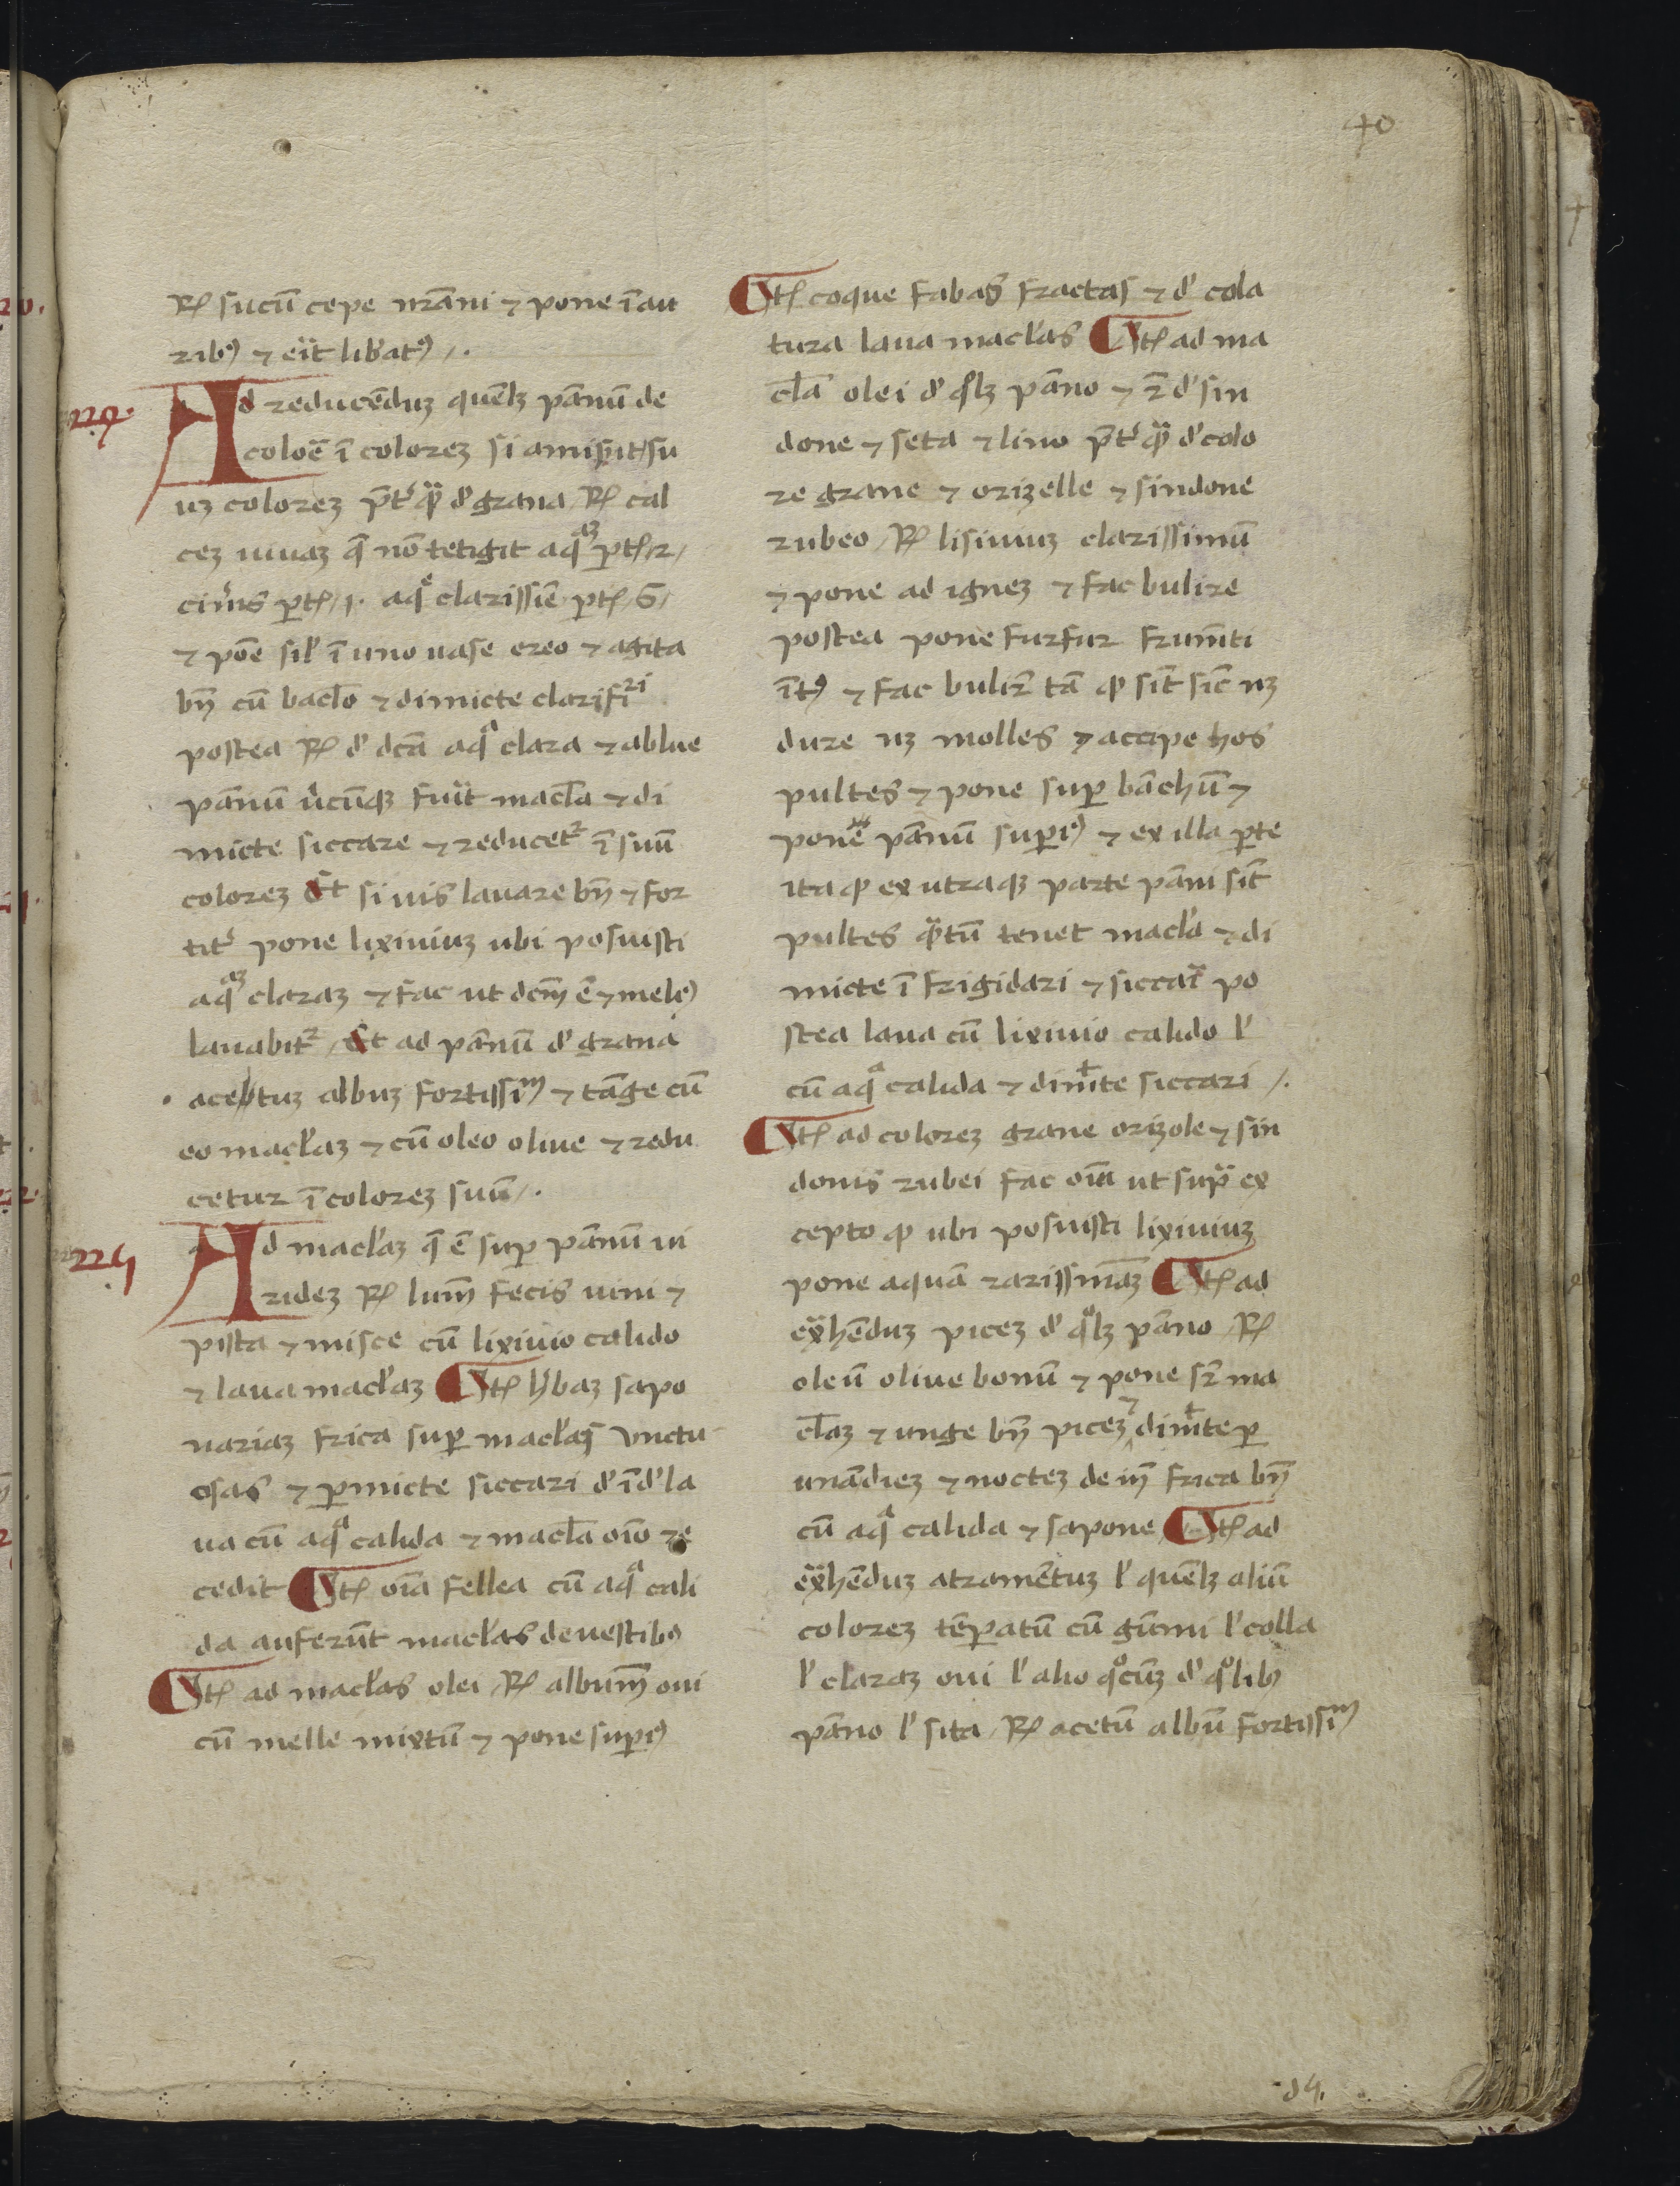 40
℞ sucū cepe nrāni ⁊ pone ī au
ribꝰ ⁊ eit̄ libatꝰ /.
Ad reducēduꝫ quēlꝫ pānū de
coloē ī colorez si amiserit su
uꝫ colorez p̄tꝰ qᷓ d' grana ℞ cal
cez uiuaz q̄ nō tetigit aqᷓꝫ ptꝭ /2/
cinꝰis ptꝭ /1. aqᷓe clarissīe ptꝭ /6/
⁊ pōe sil' ī uno uase ereo ⁊ agita
bn̄ cū baclo ⁊ dimicte clarifiri
postea ℞ d' dcā aqᷓ clara ⁊ ablue
pānū u'cūqꝫ fuit macla ⁊ di
micte siccare ⁊ reducet' ī suū
colorez Et si uis lauare bn̄ ⁊ for
tit' pone lixiuiuꝫ ubi posuisti
aqᷓꝫ claraz ⁊ fac ut dcm̄ ē ⁊ melꝰ
lauabit' / Et ad pānū d' grana
acetuꝫ albuꝫ fortissim̄ ⁊ tāge cū
eo mac'laz ⁊ cū oleo oliue ⁊ redu
cetur ī colorez suū /.
Ad mac'laz q̄ ē sup pānū ui
ridez ℞ lum̄ fecis uini ⁊
pista ⁊ misce cū lixiuio calido
⁊ laua mac'laz Itꝭ h'baz sapo
nariaz frica sup mac'las unctu
osas ⁊ pmicte siccari d' īd' la
ua cū aqᷓ calida ⁊ macla oīo re
cedit Itꝭ oīa fellea cū aqᷓ cali
da auferūt mac'las de uestibꝰ
Itꝭ ad mac'las olei ℞ albumē oui
cū melle mixtū ⁊ pone supiꝰ
Itꝭ coque fabas fractas ⁊ d' cola
tura laua mac'las Itꝭ ad ma
cla olei d' qᷓlꝫ pāno ⁊ r̄ d' sin
done ⁊ seta ⁊ lino p̄t' qᷓ d' colo
re grane ⁊ orizelle ⁊ sindone
rubeo / ℞ lisiuiuꝫ clarissimū
⁊ pone ad ignez ⁊ fac bulire
postea pone furfur frum̄ti
ītꝰ ⁊ fac bulir' tā ꝙ sīt sic nꝫ
dure nꝫ molles ⁊ accipe hos
pultes ⁊ pone sup bāchū ⁊
pone pānū supiꝰ ⁊ ex illa pte
ita ꝙ ex utraqꝫ parte pāni sīt
pultes qᷓtū tenet macla ⁊ di
micte ī frigidari ⁊ siccari po
stea laua cū lixiuio calido l'
cū aqᷓ calida ⁊ dimte siccari /.
Itꝭ ad colorez grane orizole ⁊ sin
donis rubei fac oīa ut supᷓ ex
cepto ꝙ ubi posuisti lixiuiuꝫ
pone aquā rarissimāꝫ Itꝭ ad
exᷓhēduꝫ picez d' qᷓlꝫ pāno / ℞
oleū oliue bonū ⁊ pone sr̄ ma
claz ⁊ unge bn̄ picez ⁊ dimte p
unādiez ⁊ noctez de īn̄ frica bn̄
cū aqᷓ calida ⁊ sapone / Itꝭ ad
exᷓhēduꝫ atramētuꝫ l' quēlꝫ aliū
colorez tēpatū cū gūmi l' colla
l' claraz oui l' alio qᷓcūꝫ d' qᷓlibꝫ
pāno l' sita / ℞ acetū albū fortissim̄
d4.